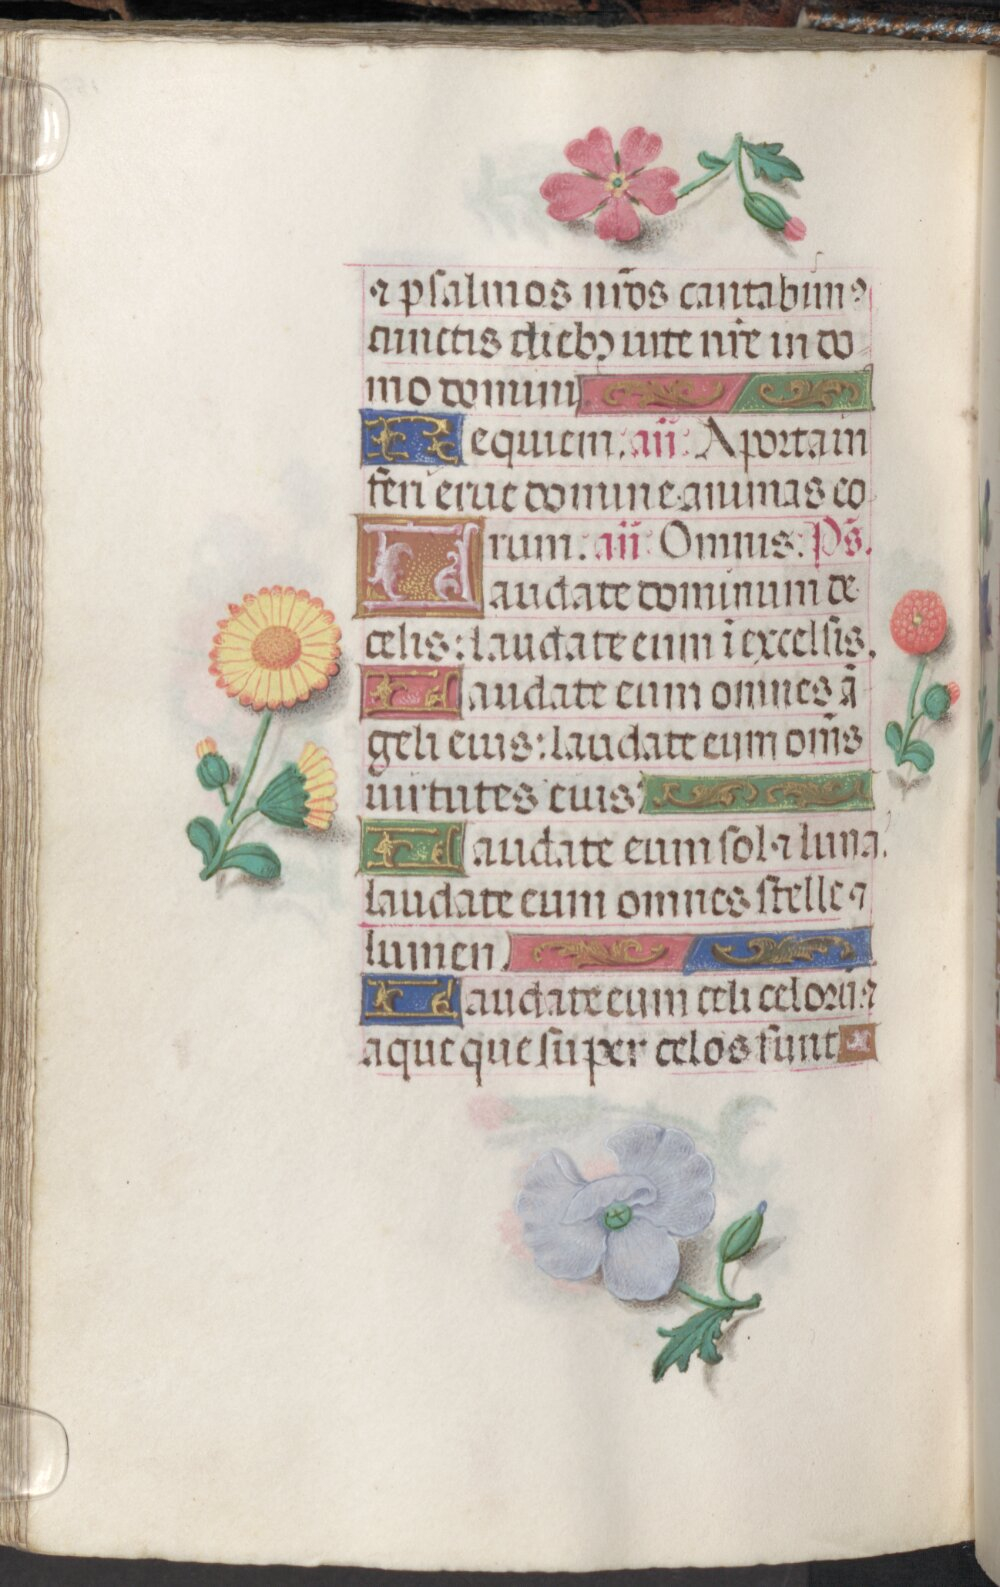 ⁊ psalmos nr̄os cantabimꝰ
cunctis diebꝫ uite nr̄e in do
mo domini.
Requiem. añ. A porta in
feri erue domine animas eo
rum. añ. Omnis. Ps̄.
Laudate dominum de
celis: laudate eum ī excelsis.
Laudate eum omnes ā
geli eius: laudate eum om̄s
uirtutes eius.
Laudate eum sol ⁊ luna.
laudate eum omnes stelle ⁊
lumen.
Laudate eum celi celorū ⁊
aque que super celos sunt